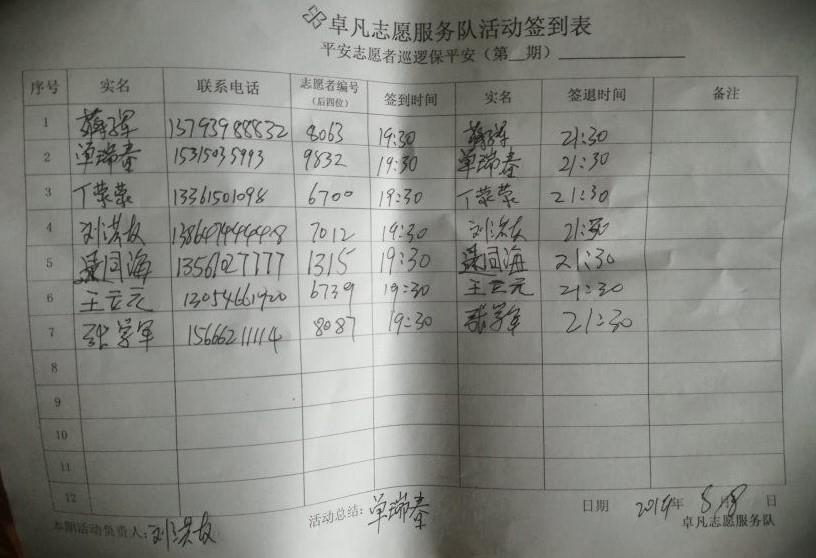 卓凡志愿服务队活动签到表
平安志愿者巡逻保平安（第__期）
序号 实名 联系电话 志愿者编号（后四位） 签到时间 实名 签退时间 备注
1 13793988832 8063 19:30 21:30
2 单瑞春 15315035993 9832 19:30 单瑞春 21:30
3 丁荣荣 13361501098 6700 19:30 丁荣荣 21:30
4 刘洪友 13864744448 7012 19:30 刘洪友 21:30
5 13561027777 1315 19:30 21:30
6 王立元 13054661920 6739 19:30 王立元 21:30
7 张学军 15666211114 8087 19:30 张学军 21:30
8
9
10
11
12
本期活动负责人：刘洪友 活动总结：单瑞春 日期 2014年 8月8日
卓凡志愿服务队